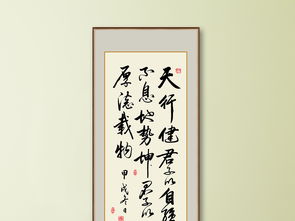 天行健君子以自強
不息地勢坤君子以
厚德載物
甲戌年